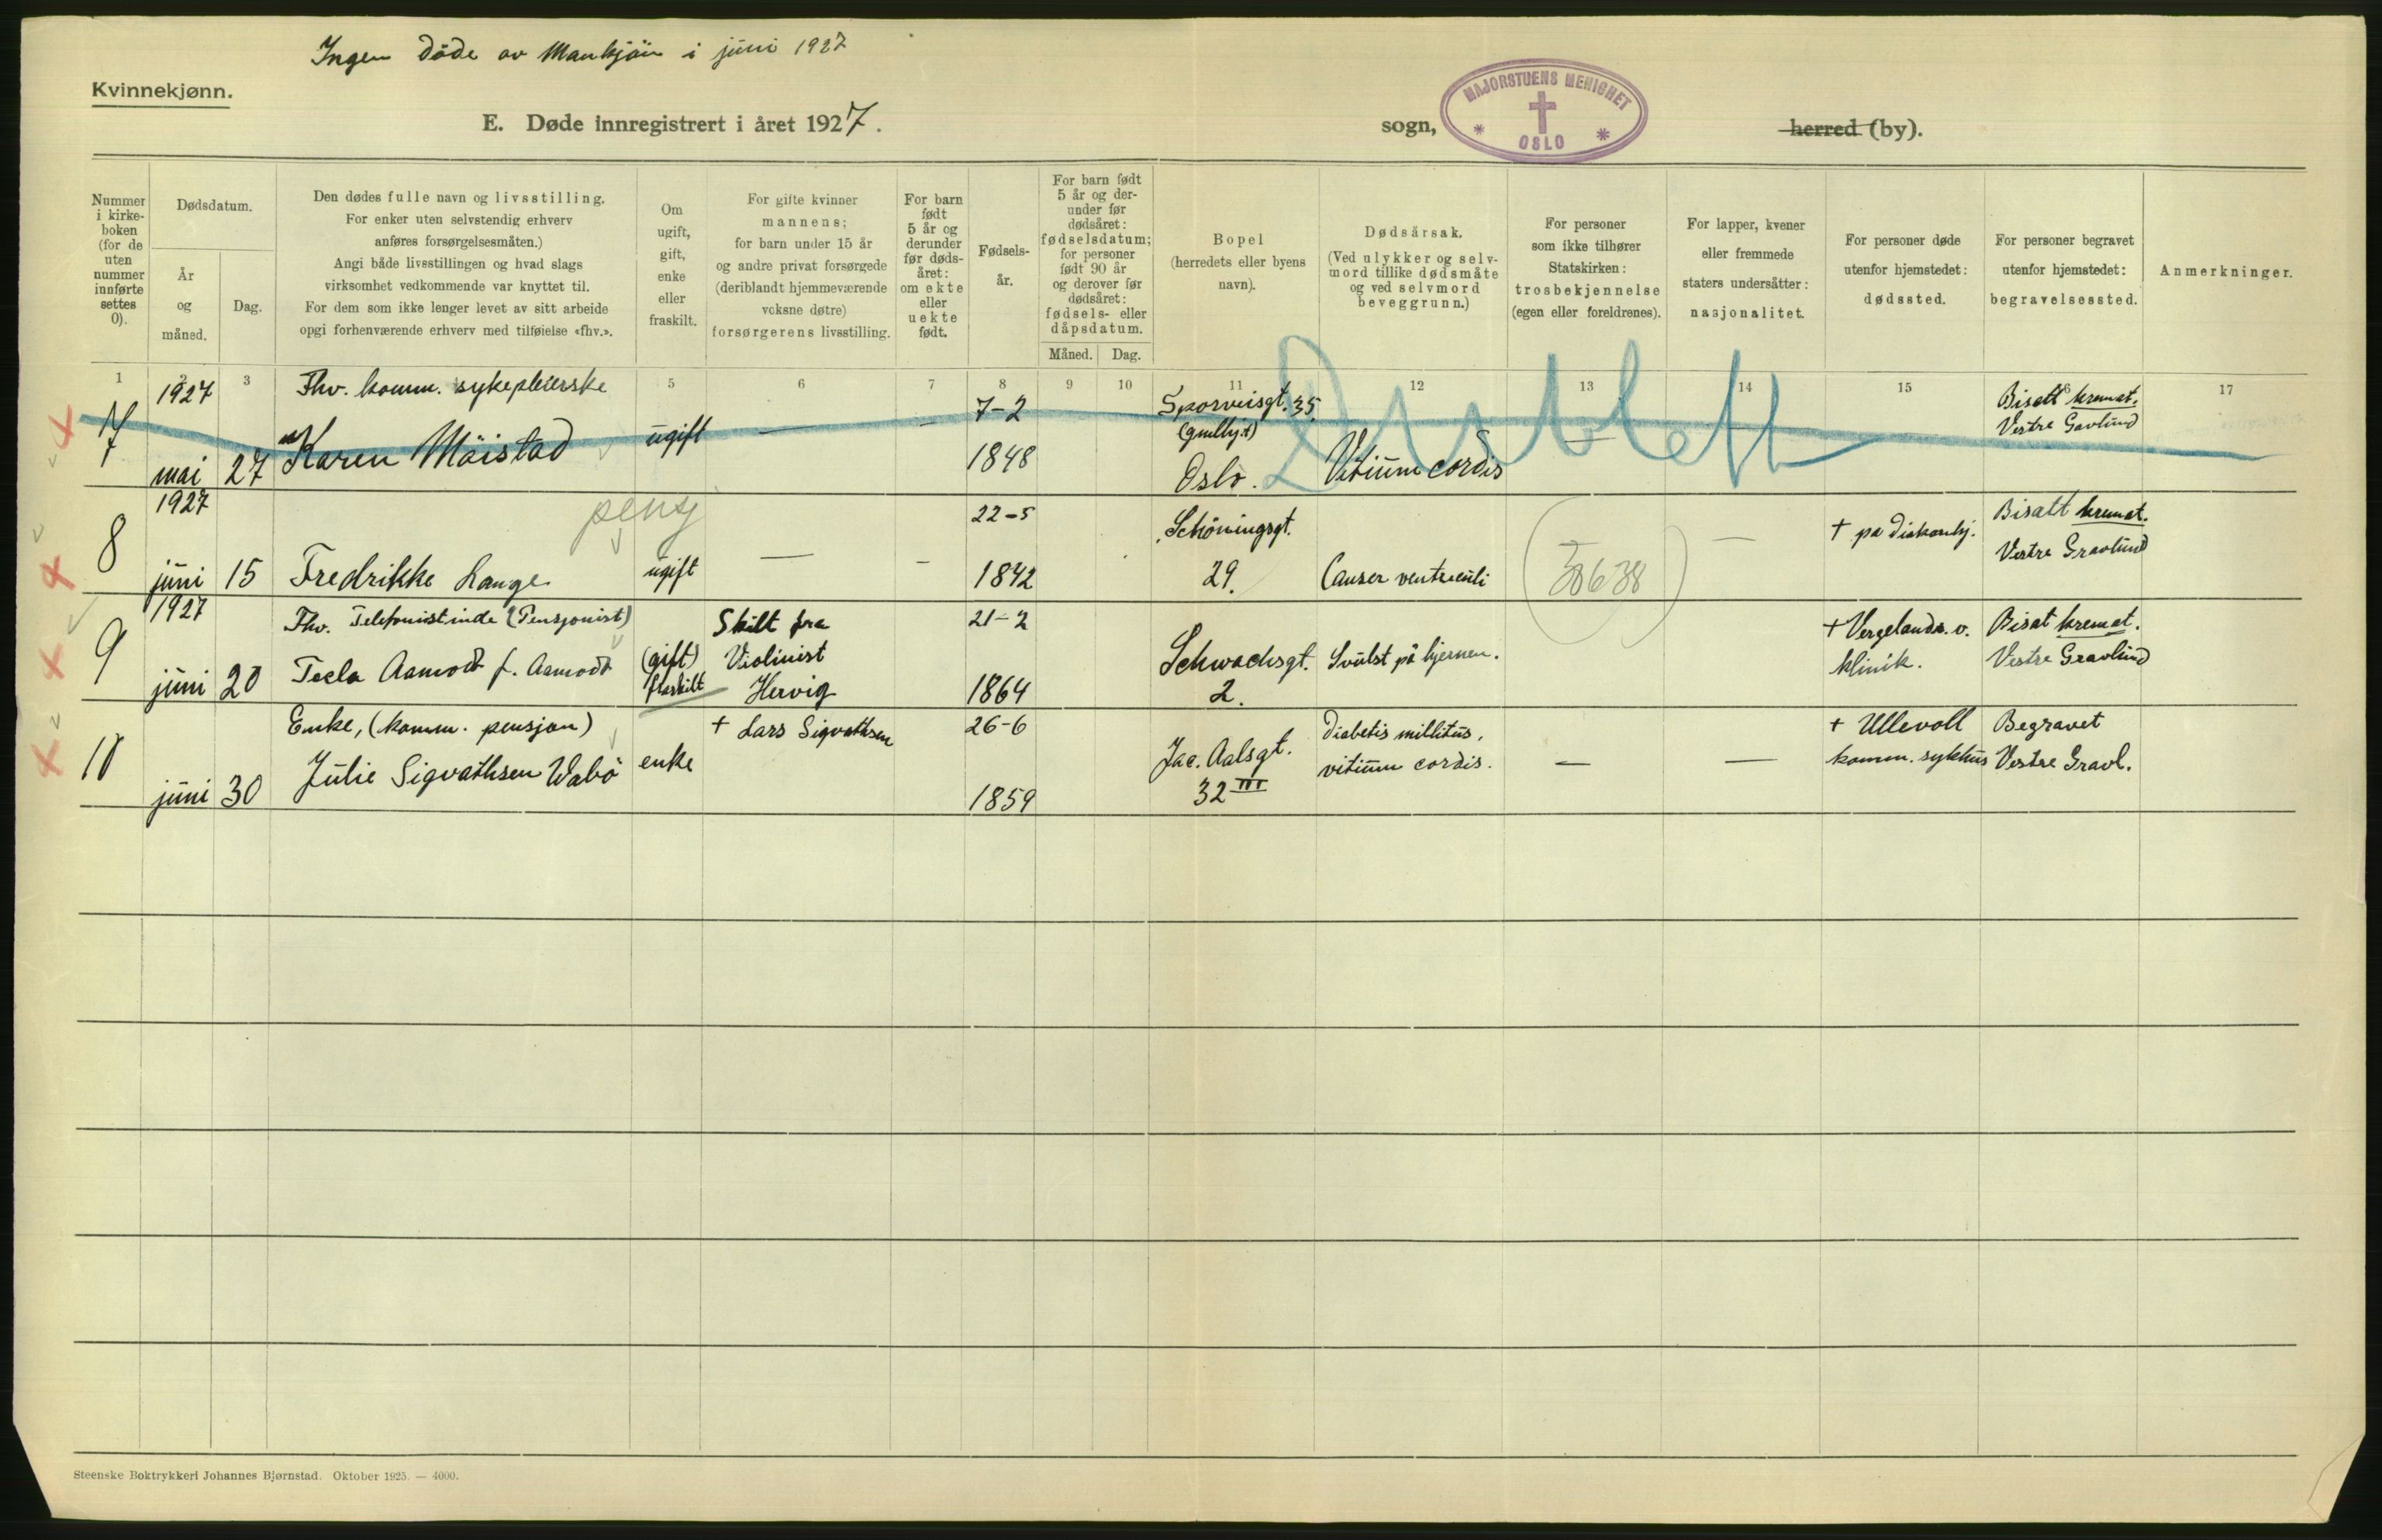 Ingen døde av Mankjøn i juni 1927
Kvinnekjønn.
E. Døde innregistrert i året 1927.
sogn,
MAJORSTUENS MENIGHET
* OSLO *
herred (by).
Nummer i kirke-boken (for de uten nummer innførte settes 0).
Dødsdatum.
År og måned.
Dag.
Den dødes fulle navn og livsstilling.
For enker uten selvstendig erhverv
anføres forsørgelsesmåten.)
Angi både livsstillingen og hvad slags
virksomhet vedkommende var knyttet til.
For dem som ikke lenger levet av sitt arbeide
opgi forhenværende erhverv med tilføielse «fhv.».
Om ugift, gift, enke eller fraskilt.
For gifte kvinner
mannens;
for barn under 15 år
og andre privat forsørgede
(deriblandt hjemmeværende
voksne døtre)
forsørgerens livsstilling.
For barn født 5 år og derunder før døds-året: om ekte eller uekte født.
Fødsels-år.
For barn født 5 år og der-under før dødsåret: fødselsdatum; for personer født 90 år og derover før dødsåret: fødsels- eller dåpsdatum.
Måned.
Dag.
Bopel
(herredets eller byens
navn).
Dødsårsak.
(Ved ulykker og selv-
mord tillike dødsmåte
og ved selvmord
beveggrunn.)
For personer
som ikke tilhører
Statskirken:
trosbekjennelse
(egen eller foreldrenes).
For lapper, kvener
eller fremmede
staters undersåtter:
nasjonalitet.
For personer døde
utenfor hjemstedet:
dødssted.
For personer begravet
utenfor hjemstedet:
begravelsessted.
Anmerkninger.
1 2 3 5 6 7 8 9 10 11 12 13 14 15 17
Dublett
7
1927
mai 27
Fhv. komm. sykepleierske
Karen Møistad
ugift
—
-
7-2
1848
Sporveisgt. 35
Oslo.
Vitium cordis
—
Bisatt kremat.
Vestre Gravlund
8
1927
juni 15
pensj
Fredrikke Lange
ugift
—
-
22-5
1842
Schøningsgt.
29.
Cancer ventriculi
—
+ på Diakonhj.
Bisatt kremat.
Vestre Gravlund
9
1927
juni 20
Fhv. Telefonistinde (Pensjonist)
Tecla Aamodt f. Aamodt
(gift)
fraskilt
Skilt fra
Violinist
Hervig
21-2
1864
Schwachsgt.
2.
Svulst på hjernen.
+ Vergelands v.
klinik.
Bisat kremat.
Vestre Gravlund
10
juni 30
Enke, (komm. pensjon)
Julie Sigvathsen Wabø
enke
+ Lars Sigvathsen
26-6
1859
Jac. Aalsgt.
32 III
Diabetis millitus,
vitium cordis.
—
—
+ Ullevoll
komm. sykhus
Begravet
Vestre Gravl.
Steenske Boktrykkeri Johannes Bjørnstad. Oktober 1925. — 4000.